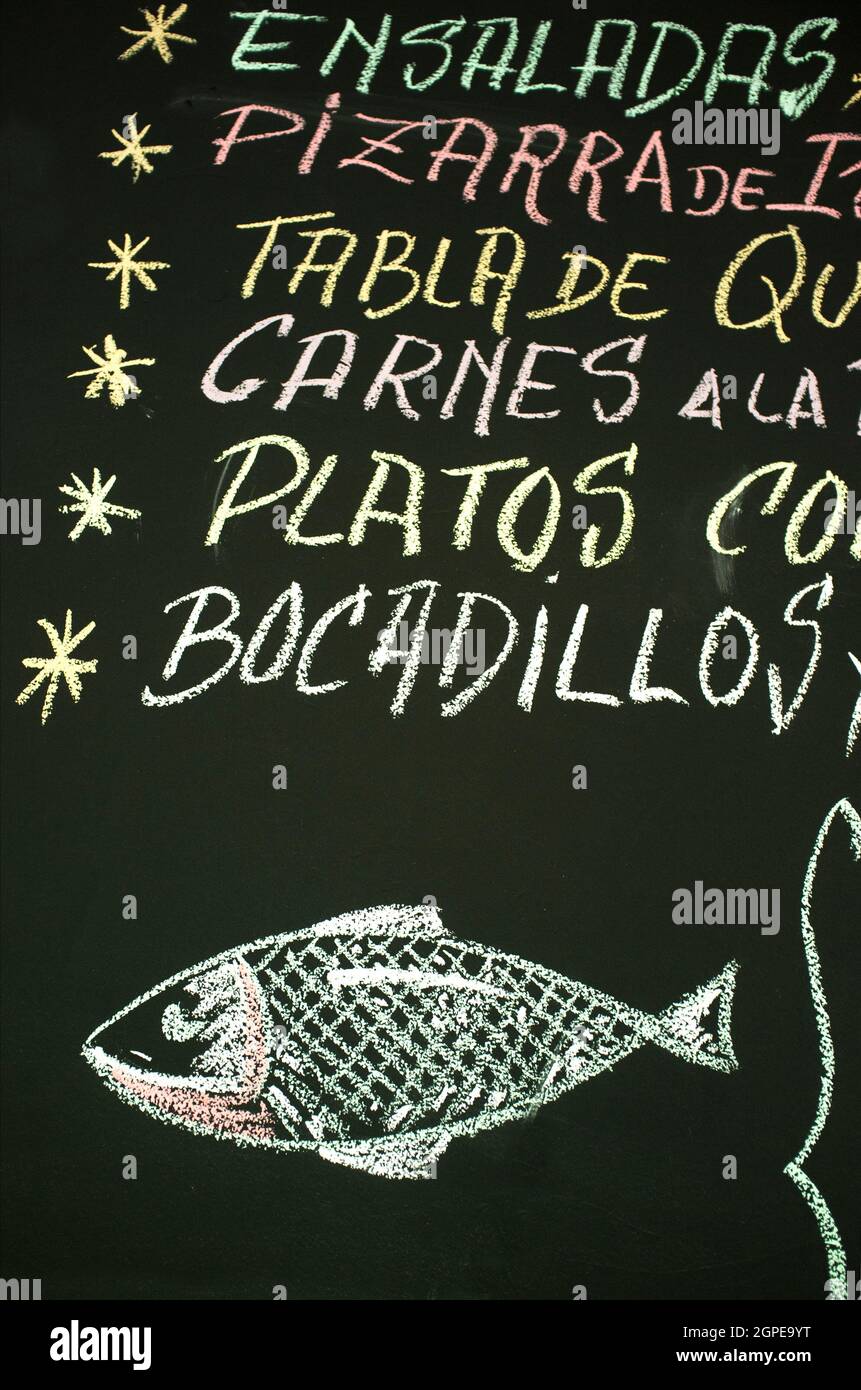 * ENSALADAS *
* PIZARRA DE
* TABLA DE
* CARNES A LA
* PLATOS
* BOCADILLOS
alamy
alamy
Image ID: 2GPE9YT
www.alamy.com